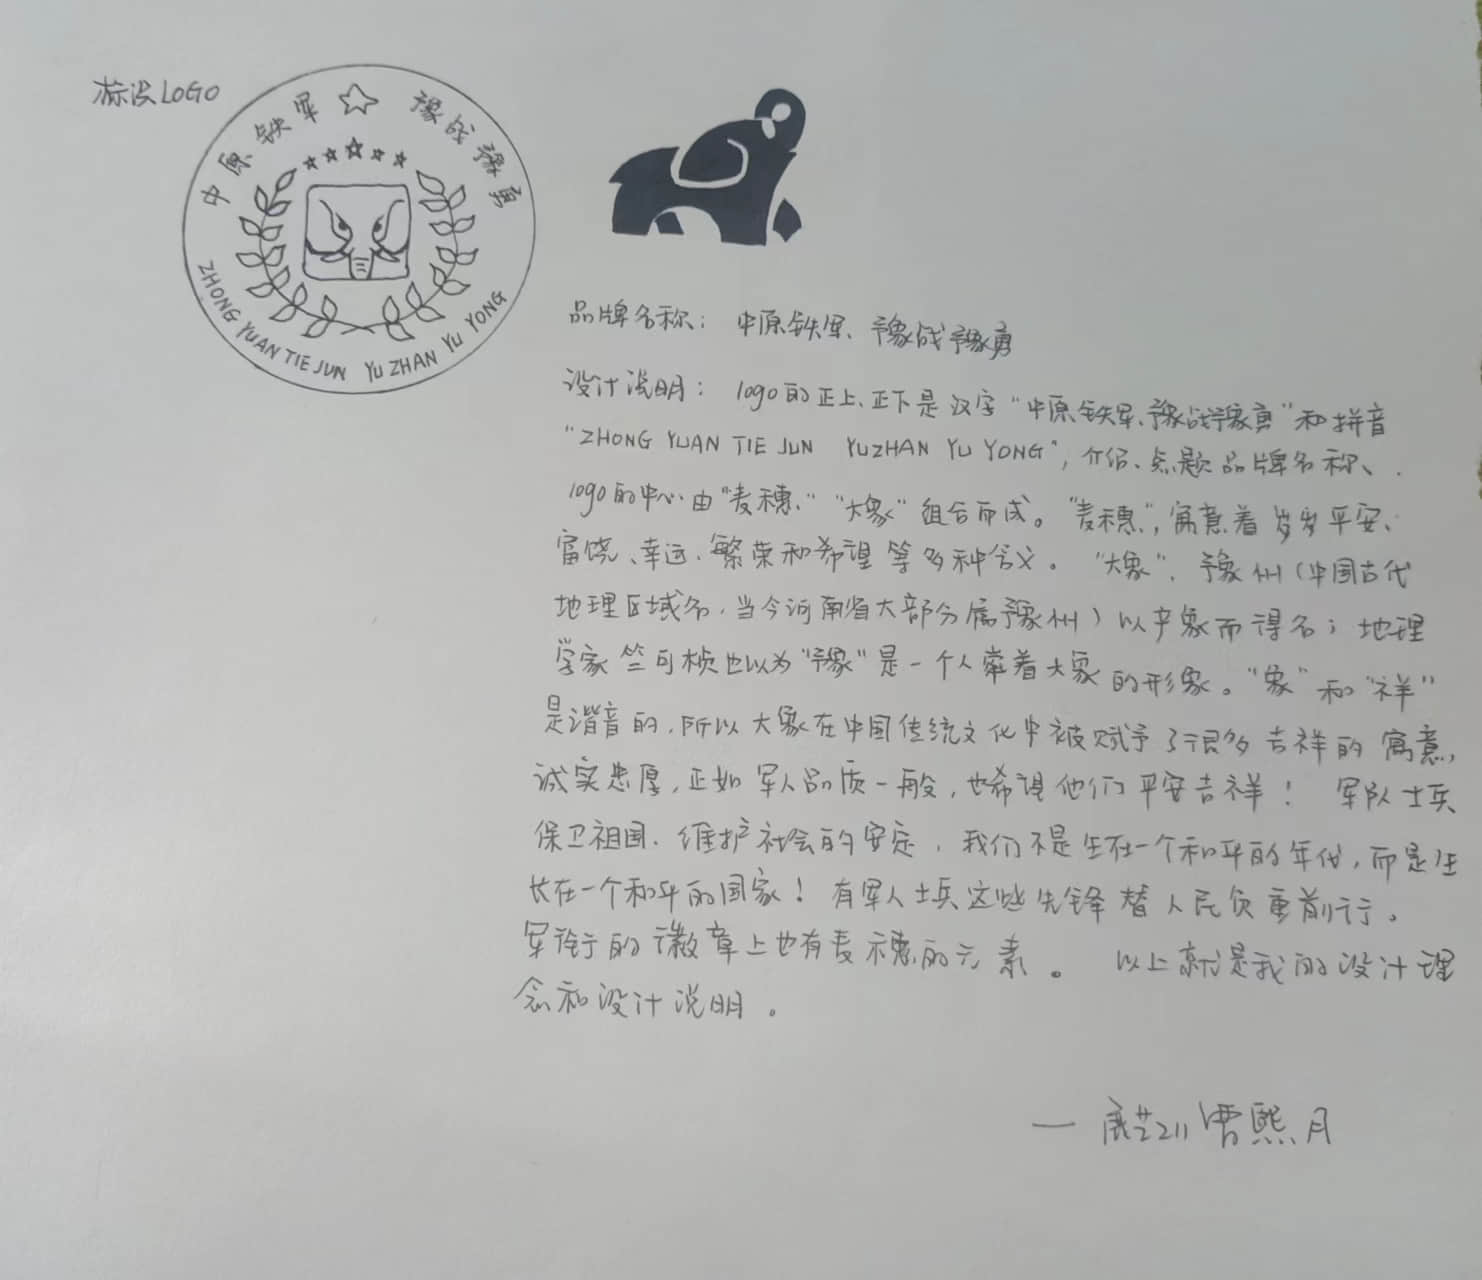 标设LOGO
中原铁军☆豫战豫勇
ZHONG YUAN TIE JUN YU ZHAN YU YONG
品牌名称：中原铁军、豫战豫勇
设计说明：logo的正上、正下是汉字“中原铁军、豫战豫勇”和拼音
“ZHONG YUAN TIE JUN YUZHAN YU YONG”，介绍、点题品牌名称、.
logo的中心由“麦穗、”“大象”组合而成。“麦穗”，寓意着岁岁平安、
富饶、幸运、繁荣和希望等多种含义。“大象”、豫州（中国古代
地理区域名，当今河南省大部分属豫州）以产象而得名；地理
学家竺可桢也以为“豫”是一个人牵着大象的形象。“象”和“祥”
是谐音的，所以大象在中国传统文化中被赋予了很多吉祥的寓意，
诚实忠厚，正如军人品质一般，也希望他们平安吉祥！军队士兵
保卫祖国、维护社会的安定，我们不是生在一个和平的年代，而是生
长在一个和平的国家！有军人士兵这些先锋替人民负重前行。
军衔的徽章上也有麦穗的元素。以上就是我的设计理
念和设计说明。
— 展艺211 曹熙月